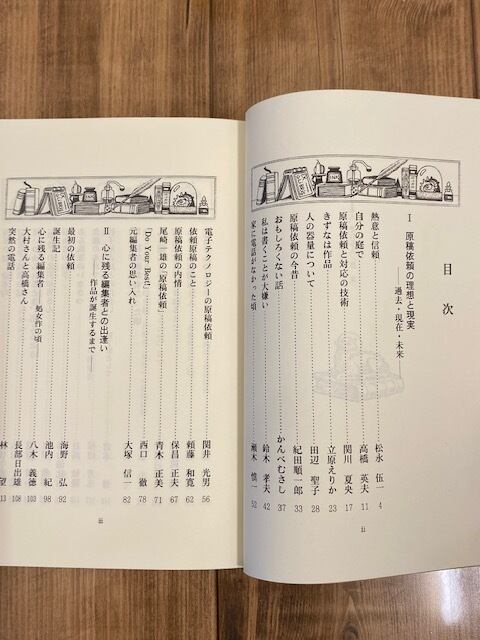 目次
Ⅰ 原稿依頼の理想と現実
――過去・現在・未来――
熱意と信頼 松永 伍一 4
自分の庭で 高橋 英夫 11
原稿依頼と対応の技術 関川 夏央 17
きずなは作品 立原えりか 23
人の器量について 田辺 聖子 28
原稿依頼の今昔 紀田順一郎 33
おもしろくない話 かんべむさし 37
私は書くことが大嫌い 鈴木 孝夫 42
家に電話がなかった頃 瀬木 慎一 52
ii
電子テクノロジーの原稿依頼 関井 光男 56
依頼原稿のこと 頼藤 和寛 62
原稿依頼の内情 保昌 正夫 67
尾崎一雄の「原稿依頼」 青木 正美 71
「Do Your Best!」 西口 徹 78
元編集者の思い入れ 大塚 信一 82
Ⅱ 心に残る編集者との出逢い
――作品が誕生するまで――
最初の依頼 海野 弘 92
誕生記 池内 紀 98
心に残る編集者――処女作の頃 八木 義徳 103
大村さんと高橋さん 長部日出雄 108
突然の電話 林 望 13
iii